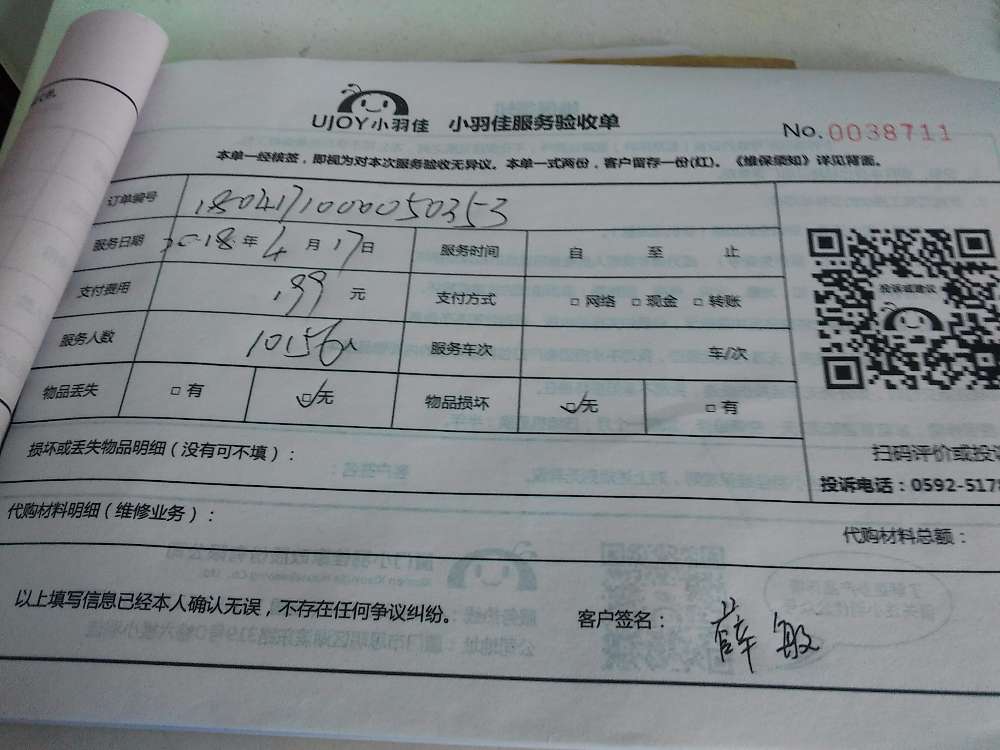 UJOY小羽佳 小羽佳服务验收单
No.0038711
本单一经核签，即视为对本次服务验收无异议。本单一式两份，客户留存一份(红)。《维保须知》详见背面。
订单编号 18041710000050353
服务日期 2018年4月17日 服务时间 自 至 止
支付费用 199元 支付方式 □网络 □现金 □转账
服务人数 10156人 服务车次 车/次
物品丢失 □有 ☑无 物品损坏 ☑无 □有
投诉或建议
损坏或丢失物品明细（没有可不填）：
扫码评价或投
投诉电话：0592-5178
代购材料明细（维修业务）：
代购材料总额：
以上填写信息已经本人确认无误，不存在任何争议纠纷。 客户签名： 薛敏